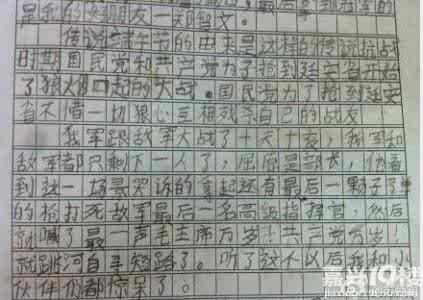 是我的好朋友一郑智文。
传说端午节的由来是这样的传说抗战
的时国民党和共产党为了抢到延安省开始
了狼烟四起的大战。国民党为了抢到延安
省不惜一切狠心互相残杀自己的战友
我军跟敌军大战了十天十夜，我军和
敌军都只剩下一人了，屈原是部长，他看
到这一场景哭诉的拿起还有最后一颗子弹
的枪打死敌军最后一名高级指挥官，然后
就喊了最一声毛主席万岁！共产党万岁！
就跳河自寻短路了。听了这个以后我和小
伙伴们都惊呆了。
嘉兴19楼